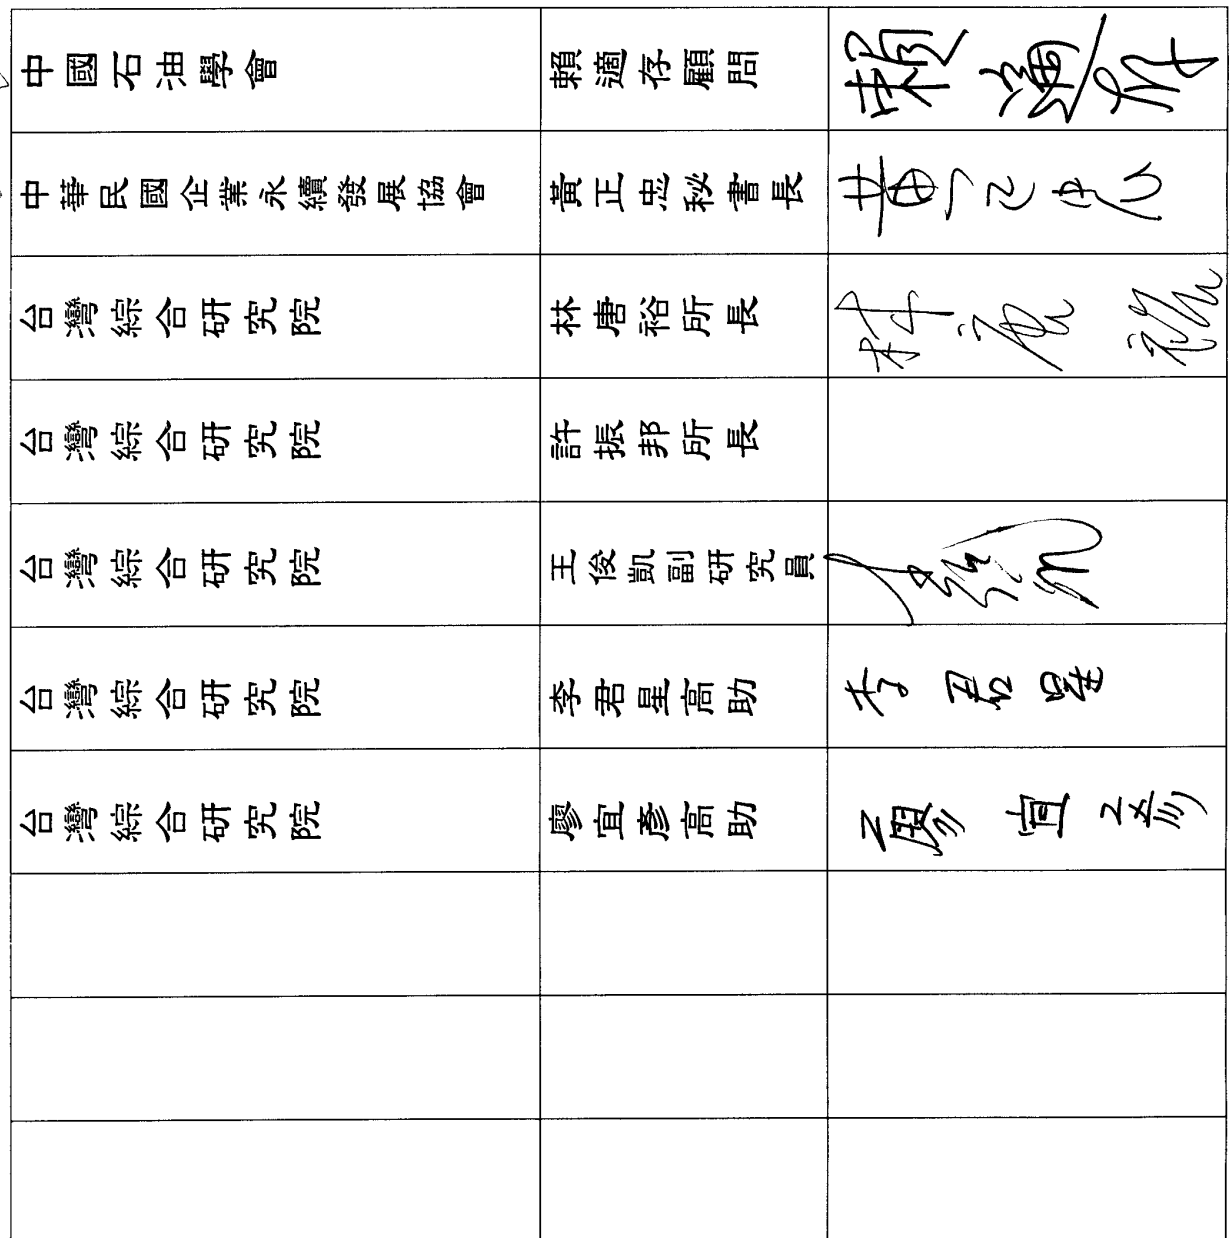 中國石油學會 賴適存顧問 賴適存
中華民國企業永續發展協會 黃正忠秘書長 黃正忠
台灣綜合研究院 林唐裕所長 林唐裕
台灣綜合研究院 許振邦所長
台灣綜合研究院 王俊凱副研究員
台灣綜合研究院 李君星高助 李君星
台灣綜合研究院 廖宜彥高助 廖宜彥